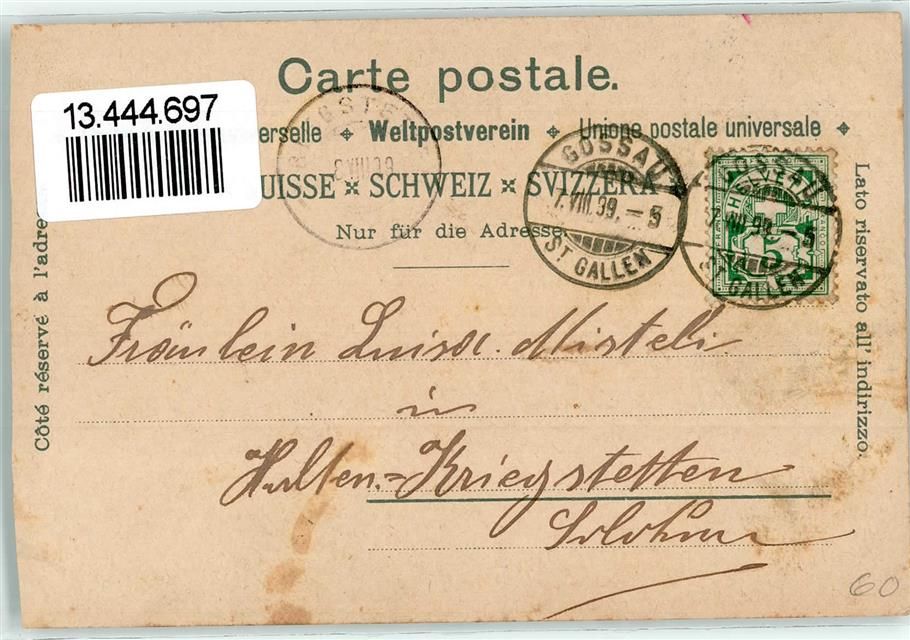 Carte postale.
13.444.697
erselle Weltpostverein Unione postale universale
UISSE × SCHWEIZ × SVIZZERA
Nur für die Adresse
GOSSAU
7.VIII.99.-5
ST GALLEN
HELVETIA
5
7.VIII.99.-5
ST GALLEN
8 VIII 99
Côté réservé à l'adre
Lato riservato all' indirizzo.
Fräulein Luise. Misteli
in
Halten.=Kriegstetten
Solothurn
60